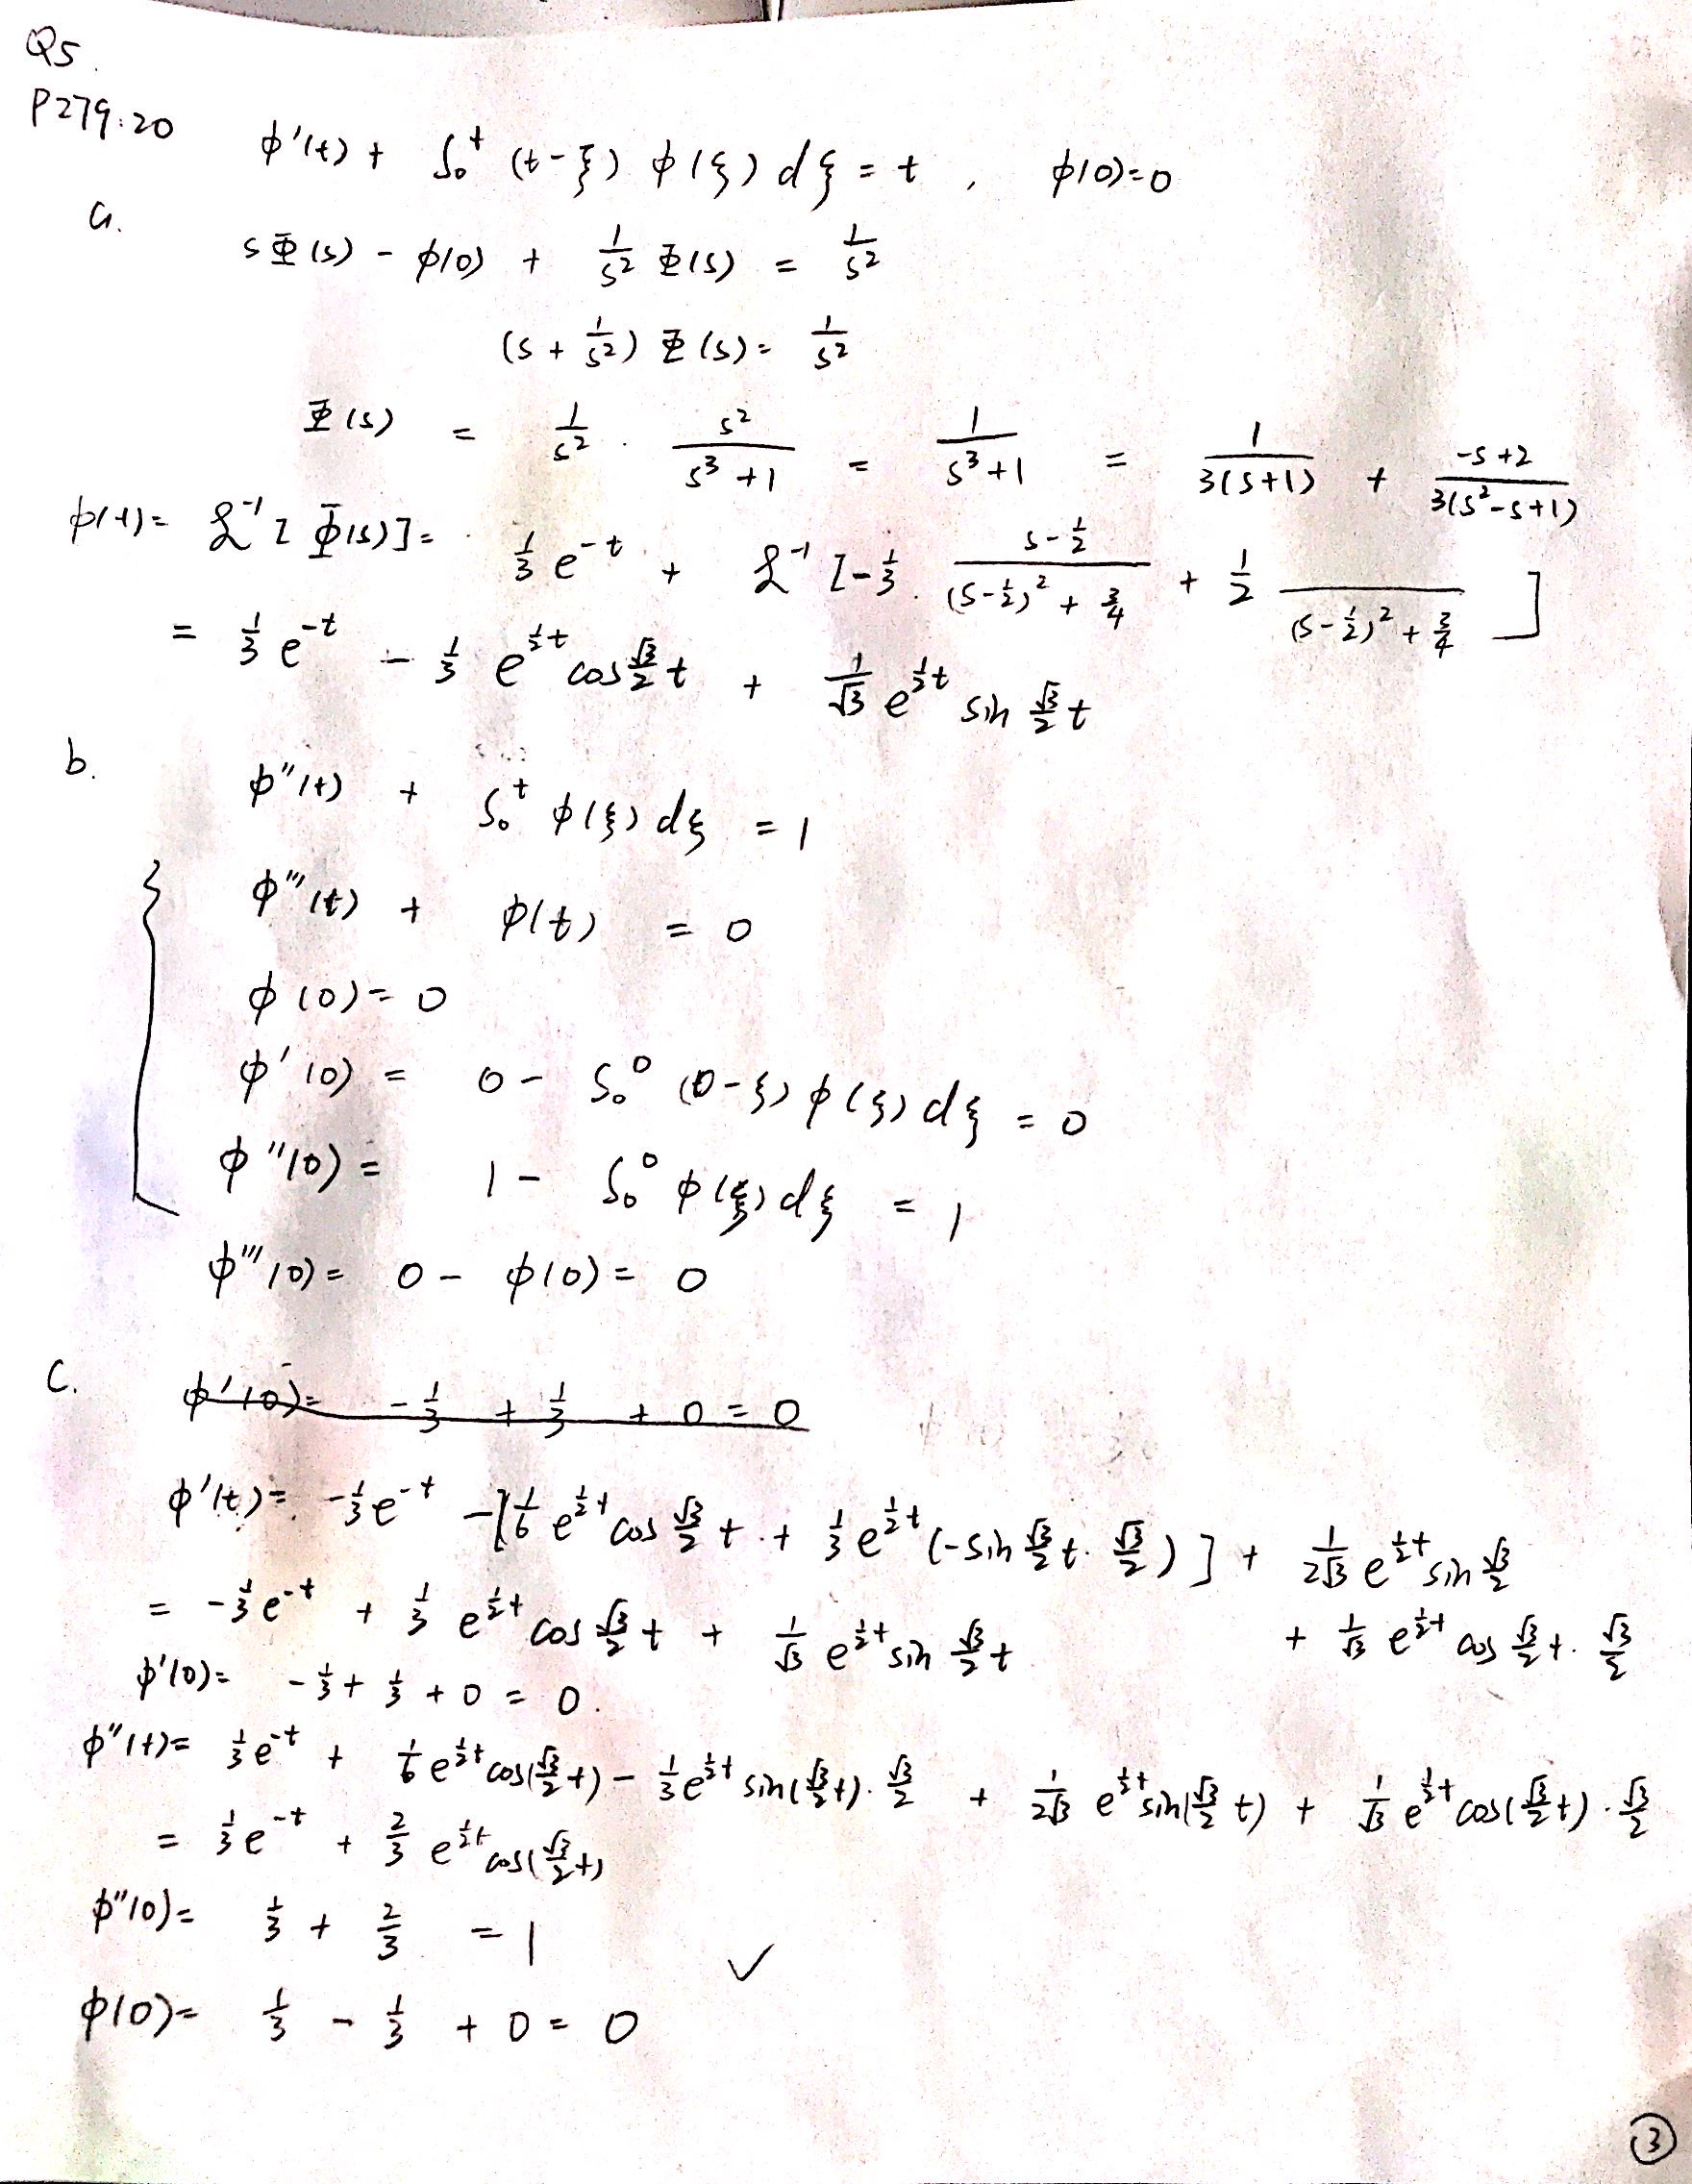 Q5.
P279.20
ϕ'(t) + ∫₀ᵗ (t-ξ) ϕ(ξ) dξ = t , ϕ(0)=0
a.
sΦ(s) - ϕ(0) + 1/s² Φ(s) = 1/s²
(s + 1/s²) Φ(s) = 1/s²
Φ(s) = 1/s² · s²/(s³+1) = 1/(s³+1) = 1/(3(s+1)) + (-s+2)/(3(s²-s+1))
ϕ(t) = ℒ⁻¹[Φ(s)] = 1/3 e^(-t) + ℒ⁻¹[-1/3 · (s-1/2)/((s-1/2)²+3/4) + 1/2 /((s-1/2)²+3/4)]
= 1/3 e^(-t) - 1/3 e^(1/2 t) cos √3/2 t + 1/√3 e^(1/2 t) sin √3/2 t
b.
ϕ''(t) + ∫₀ᵗ ϕ(ξ) dξ = 1
ϕ'''(t) + ϕ(t) = 0
ϕ(0) = 0
ϕ'(0) = 0 - ∫₀⁰ (0-ξ) ϕ(ξ) dξ = 0
ϕ''(0) = 1 - ∫₀⁰ ϕ(ξ) dξ = 1
ϕ'''(0) = 0 - ϕ(0) = 0
c.
ϕ'(0) = -1/3 + 1/3 + 0 = 0
ϕ'(t) = -1/3 e^(-t) - [1/6 e^(1/2 t) cos √3/2 t + 1/3 e^(1/2 t) (-sin √3/2 t · √3/2)] + 1/(2√3) e^(1/2 t) sin √3/2
+ 1/√3 e^(1/2 t) cos √3/2 t · √3/2
= -1/3 e^(-t) + 1/3 e^(1/2 t) cos √3/2 t + 1/√3 e^(1/2 t) sin √3/2 t
ϕ'(0) = -1/3 + 1/3 + 0 = 0.
ϕ''(t) = 1/3 e^(-t) + 1/6 e^(1/2 t) cos(√3/2 t) - 1/3 e^(1/2 t) sin(√3/2 t) · √3/2 + 1/(2√3) e^(1/2 t) sin(√3/2 t) + 1/√3 e^(1/2 t) cos(√3/2 t) · √3/2
= 1/3 e^(-t) + 2/3 e^(1/2 t) cos(√3/2 t)
ϕ''(0) = 1/3 + 2/3 = 1 ✓
ϕ(0) = 1/3 - 1/3 + 0 = 0
③